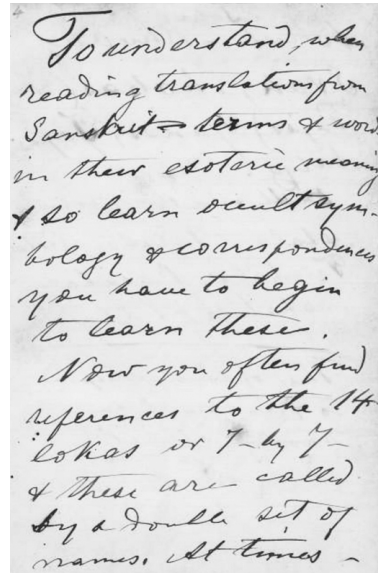 To understand, when
reading translations from
Sanskrit - terms & word
in their esoteric meaning
& so learn occult sym-
bology & correspondences
you have to begin
to learn these.
Now you often find
references to the 14
lokas or 7 - by 7 -
& these are called
by a double set of
names. At times -